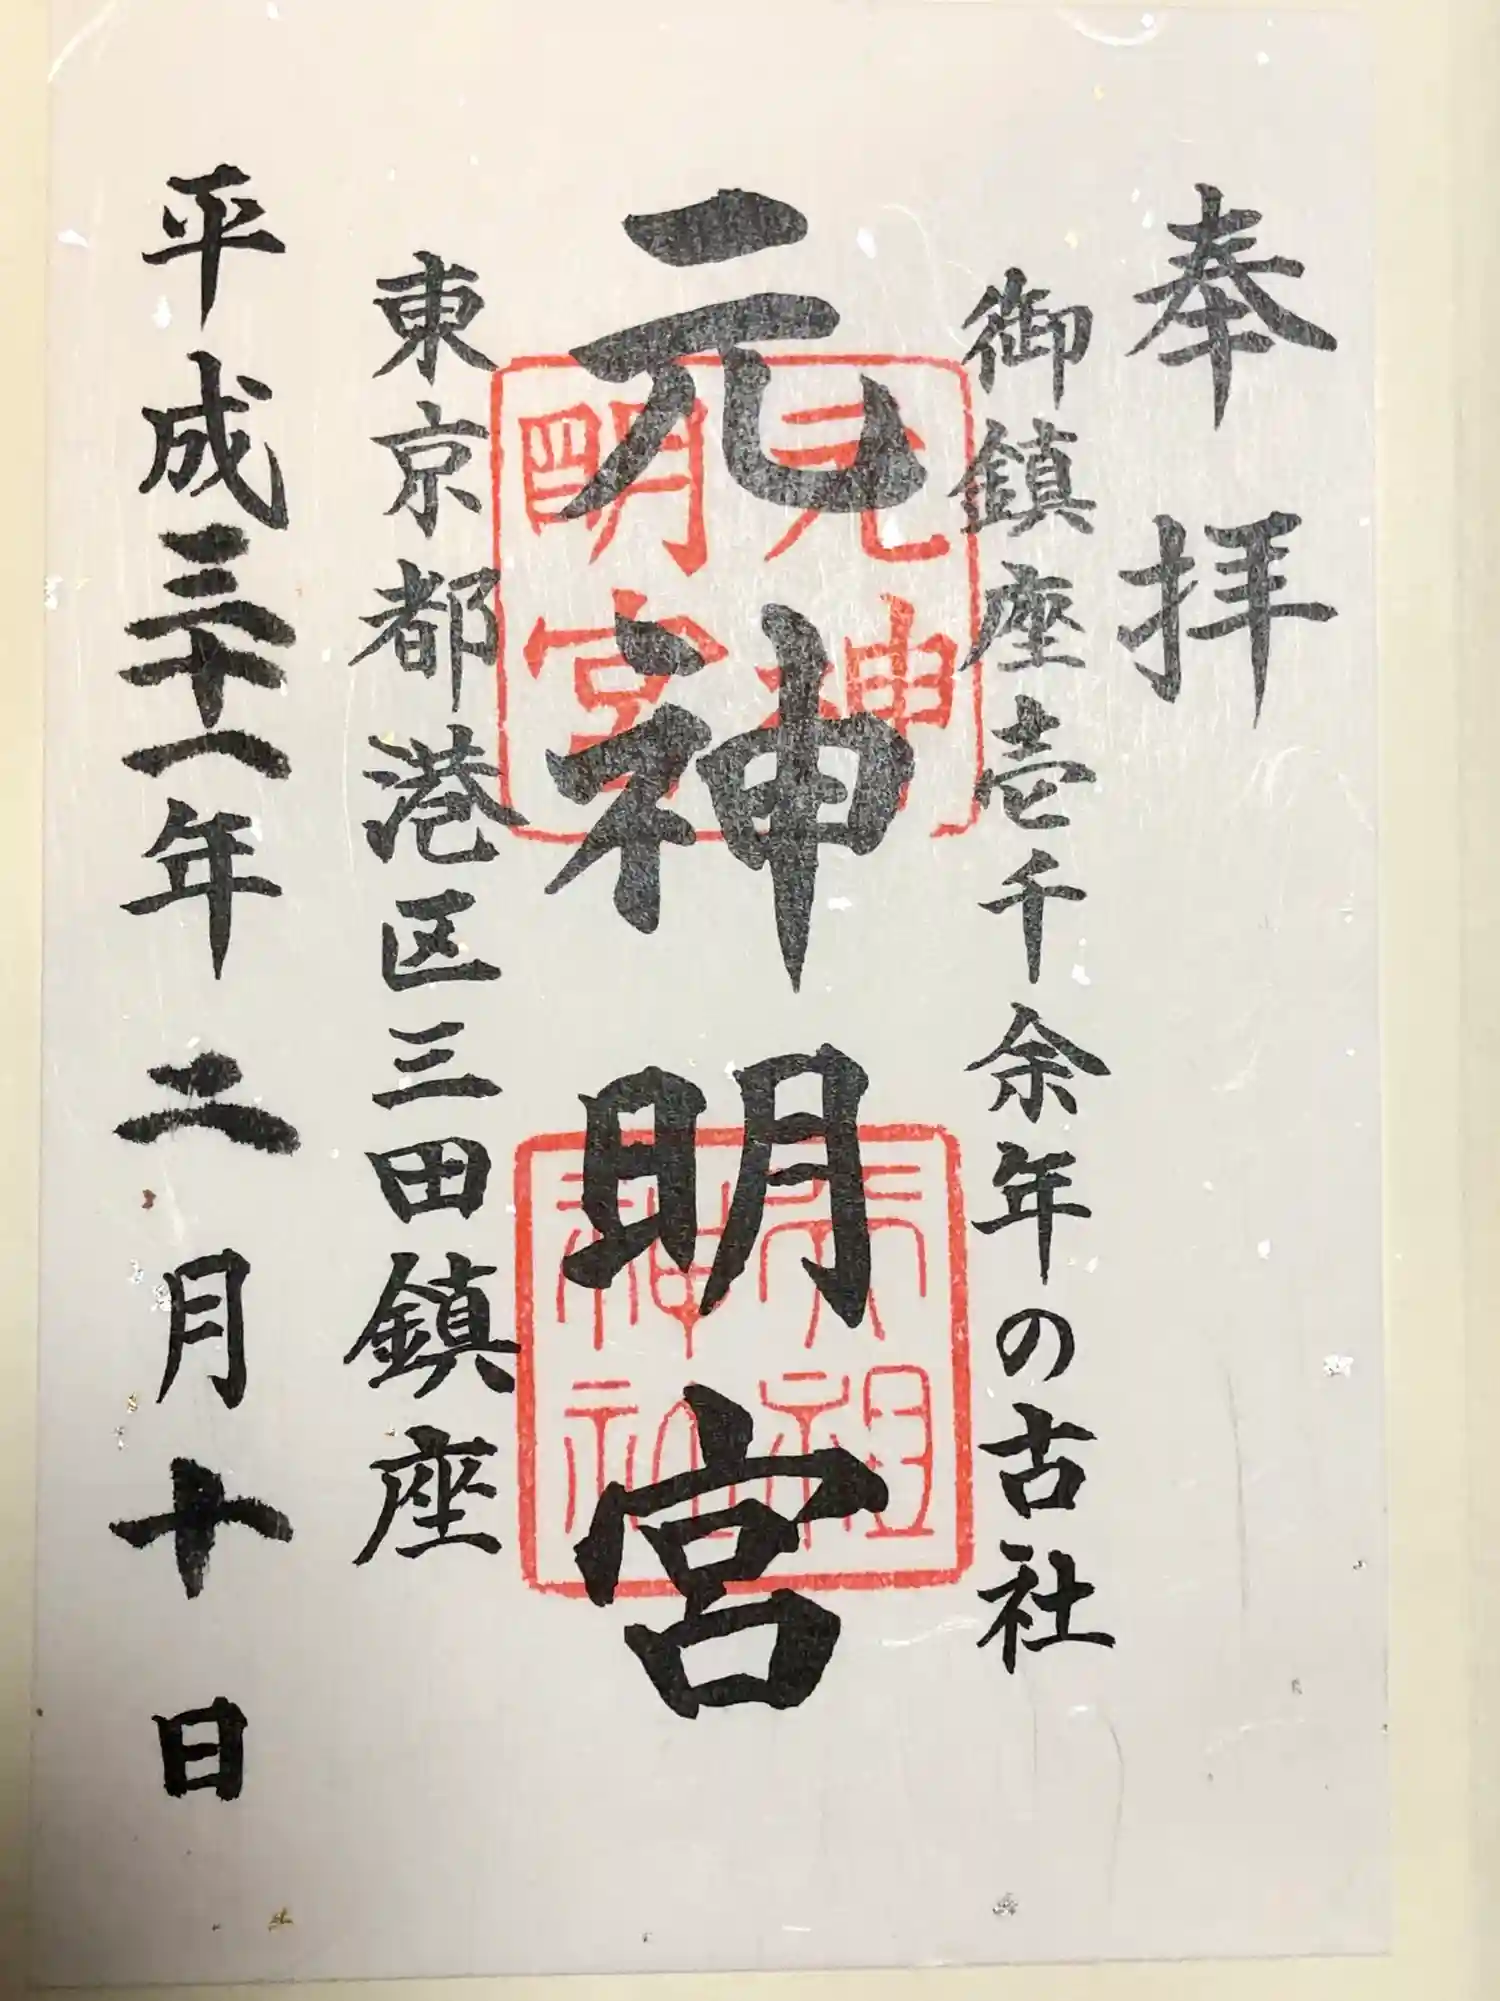 奉拝
御鎮座壱千余年の古社
元神明宮
元神
明宮
天祖
神社
東京都港区三田鎮座
平成三十一年二月十日